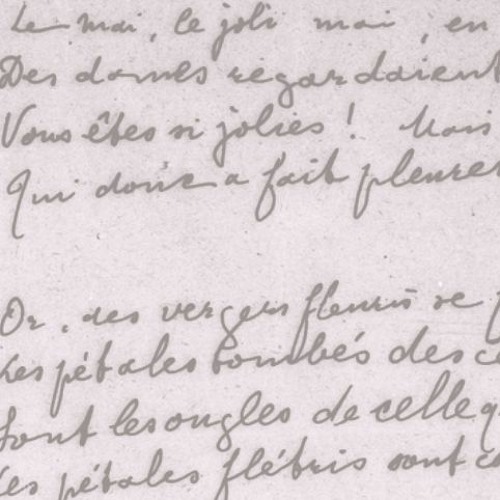 Le mai, le joli mai, en
Des dames regardaient
Vous êtes si jolies! Mais
Qui donc a fait pleurer
Or, des vergers fleuris se
Les pétales tombés des
Sont les ongles de celle q
Les pétales flétris sont co